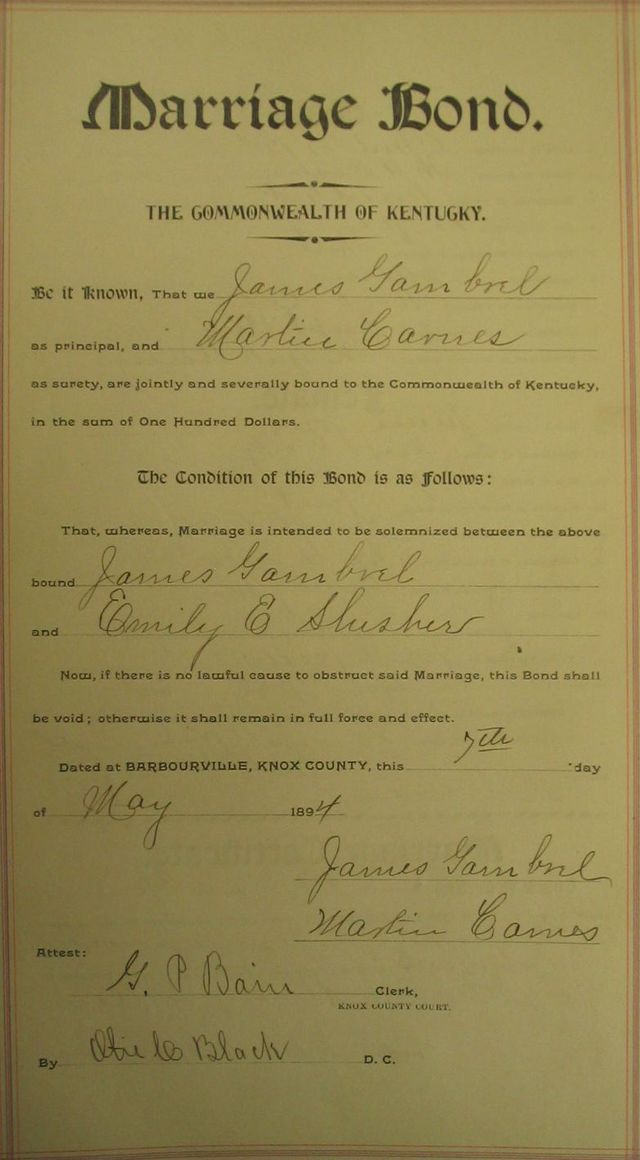 Marriage Bond.
THE COMMONWEALTH OF KENTUCKY.
Be it Known, That we James Gambrel
as principal, and Martin Carnes
as surety, are jointly and severally bound to the Commonwealth of Kentucky,
in the sum of One Hundred Dollars.
The Condition of this Bond is as Follows:
That, whereas, Marriage is intended to be solemnized between the above
bound James Gambrel
and Emily E Slusher
Now, if there is no lawful cause to obstruct said Marriage, this Bond shall
be void; otherwise it shall remain in full force and effect.
Dated at BARBOURVILLE, KNOX COUNTY, this 7th day
of May 1894
James Gambrel
Martin Carnes
Attest:
G. P Bain Clerk,
KNOX COUNTY COURT.
By Black D. C.